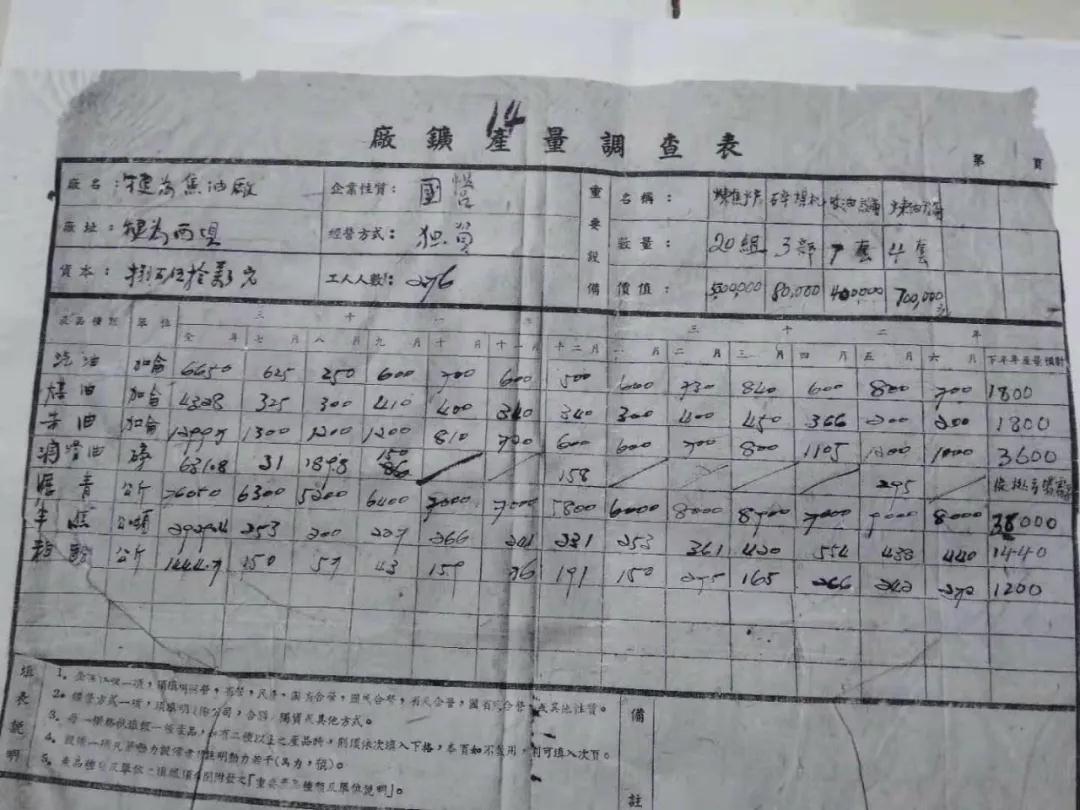 14
廠鑛產量調查表
第 頁
廠名：犍為焦油廠 企業性質：國營 重要設備 名稱：煉焦炉 碎煤机
廠址：犍為西壩 經營方式：独資 數量：20組 3部 7套 4套
資本：捌百伍拾萬元 工人人數：276 價值：500,000 80,000 400000 700,000元
產品種類 單位 三十一年 三十二年
全年 七月 八月 九月 十月 十一月 十二月 一月 二月 三月 四月 五月 六月 下半年產量預計
汽油 加侖 6650 625 250 600 700 600 500 600 730 840 600 800 700 1800
燈油 加侖 4328 325 300 410 400 340 340 300 400 450 366 200 200 1800
柴油 加侖 1300 1200 1200 810 700 600 600 700 800 1105 1200 1000 3600
潤滑油 磅 31 150 158 295
瀝青 公斤 76050 6300 5200 6400 7000 7000 5800 6000 8000 8900 7000 9000 8000 38000
半焦 公噸 253 200 227 266 241 231 253 361 420 554 438 440 1440
公斤 150 57 43 159 76 191 150 275 165 266 242 272 1200
填表說明
1。企業性質一項，須填明國營，省營，民營，國省合營，國民合營，省民合營，國省民合營，或其他性質。
2。經營方式一項，須填明公司，合夥，獨資或其他方式。
3。每一橫格祇填報一種產品，如有二種以上之產品時，則須依次填入下格，本頁如不敷用，則可填入次頁。
4。設備一項凡單動力設備者須註明動力若干(馬力，瓩)。
5。產品種類及單位之填報須參閱附發之「重要產品種類及單位說明」。
備註